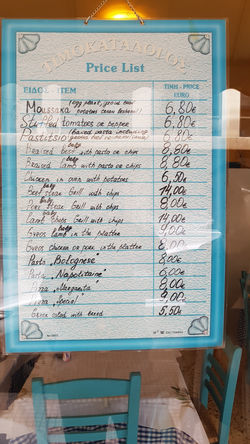 ΤΙΜΟΚΑΤΑΛΟΓΟΣ
Price List
ΕΙΔΟΣ - ITEM ΤΙΜΗ - PRICE
EURO
Moussaka 6,80€
Stuffed tomatoes or pepper 6,80€
Pastitsio 6,80
beef with pasta or chips 8,80€
Braised lamb with pasta or chips 8,80€
Chicken in oven with potatoes 6,50€
baby
Beef steak Grill with chips 14,00€
baby
Pork steak Grill with chips 8,00€
baby
Lamb Chops Grill with chips 14,00€
Gyros in the platter 9,00€
Gyros chicken or pork in the platter 8,00€
Pasta „Bolognese" 8,00€
Pasta „Napolitaine" 6,00€
Pizza „Margarita" 8,00€
Pizza „Special" 9,00€
Greek salad with bread 5,50€